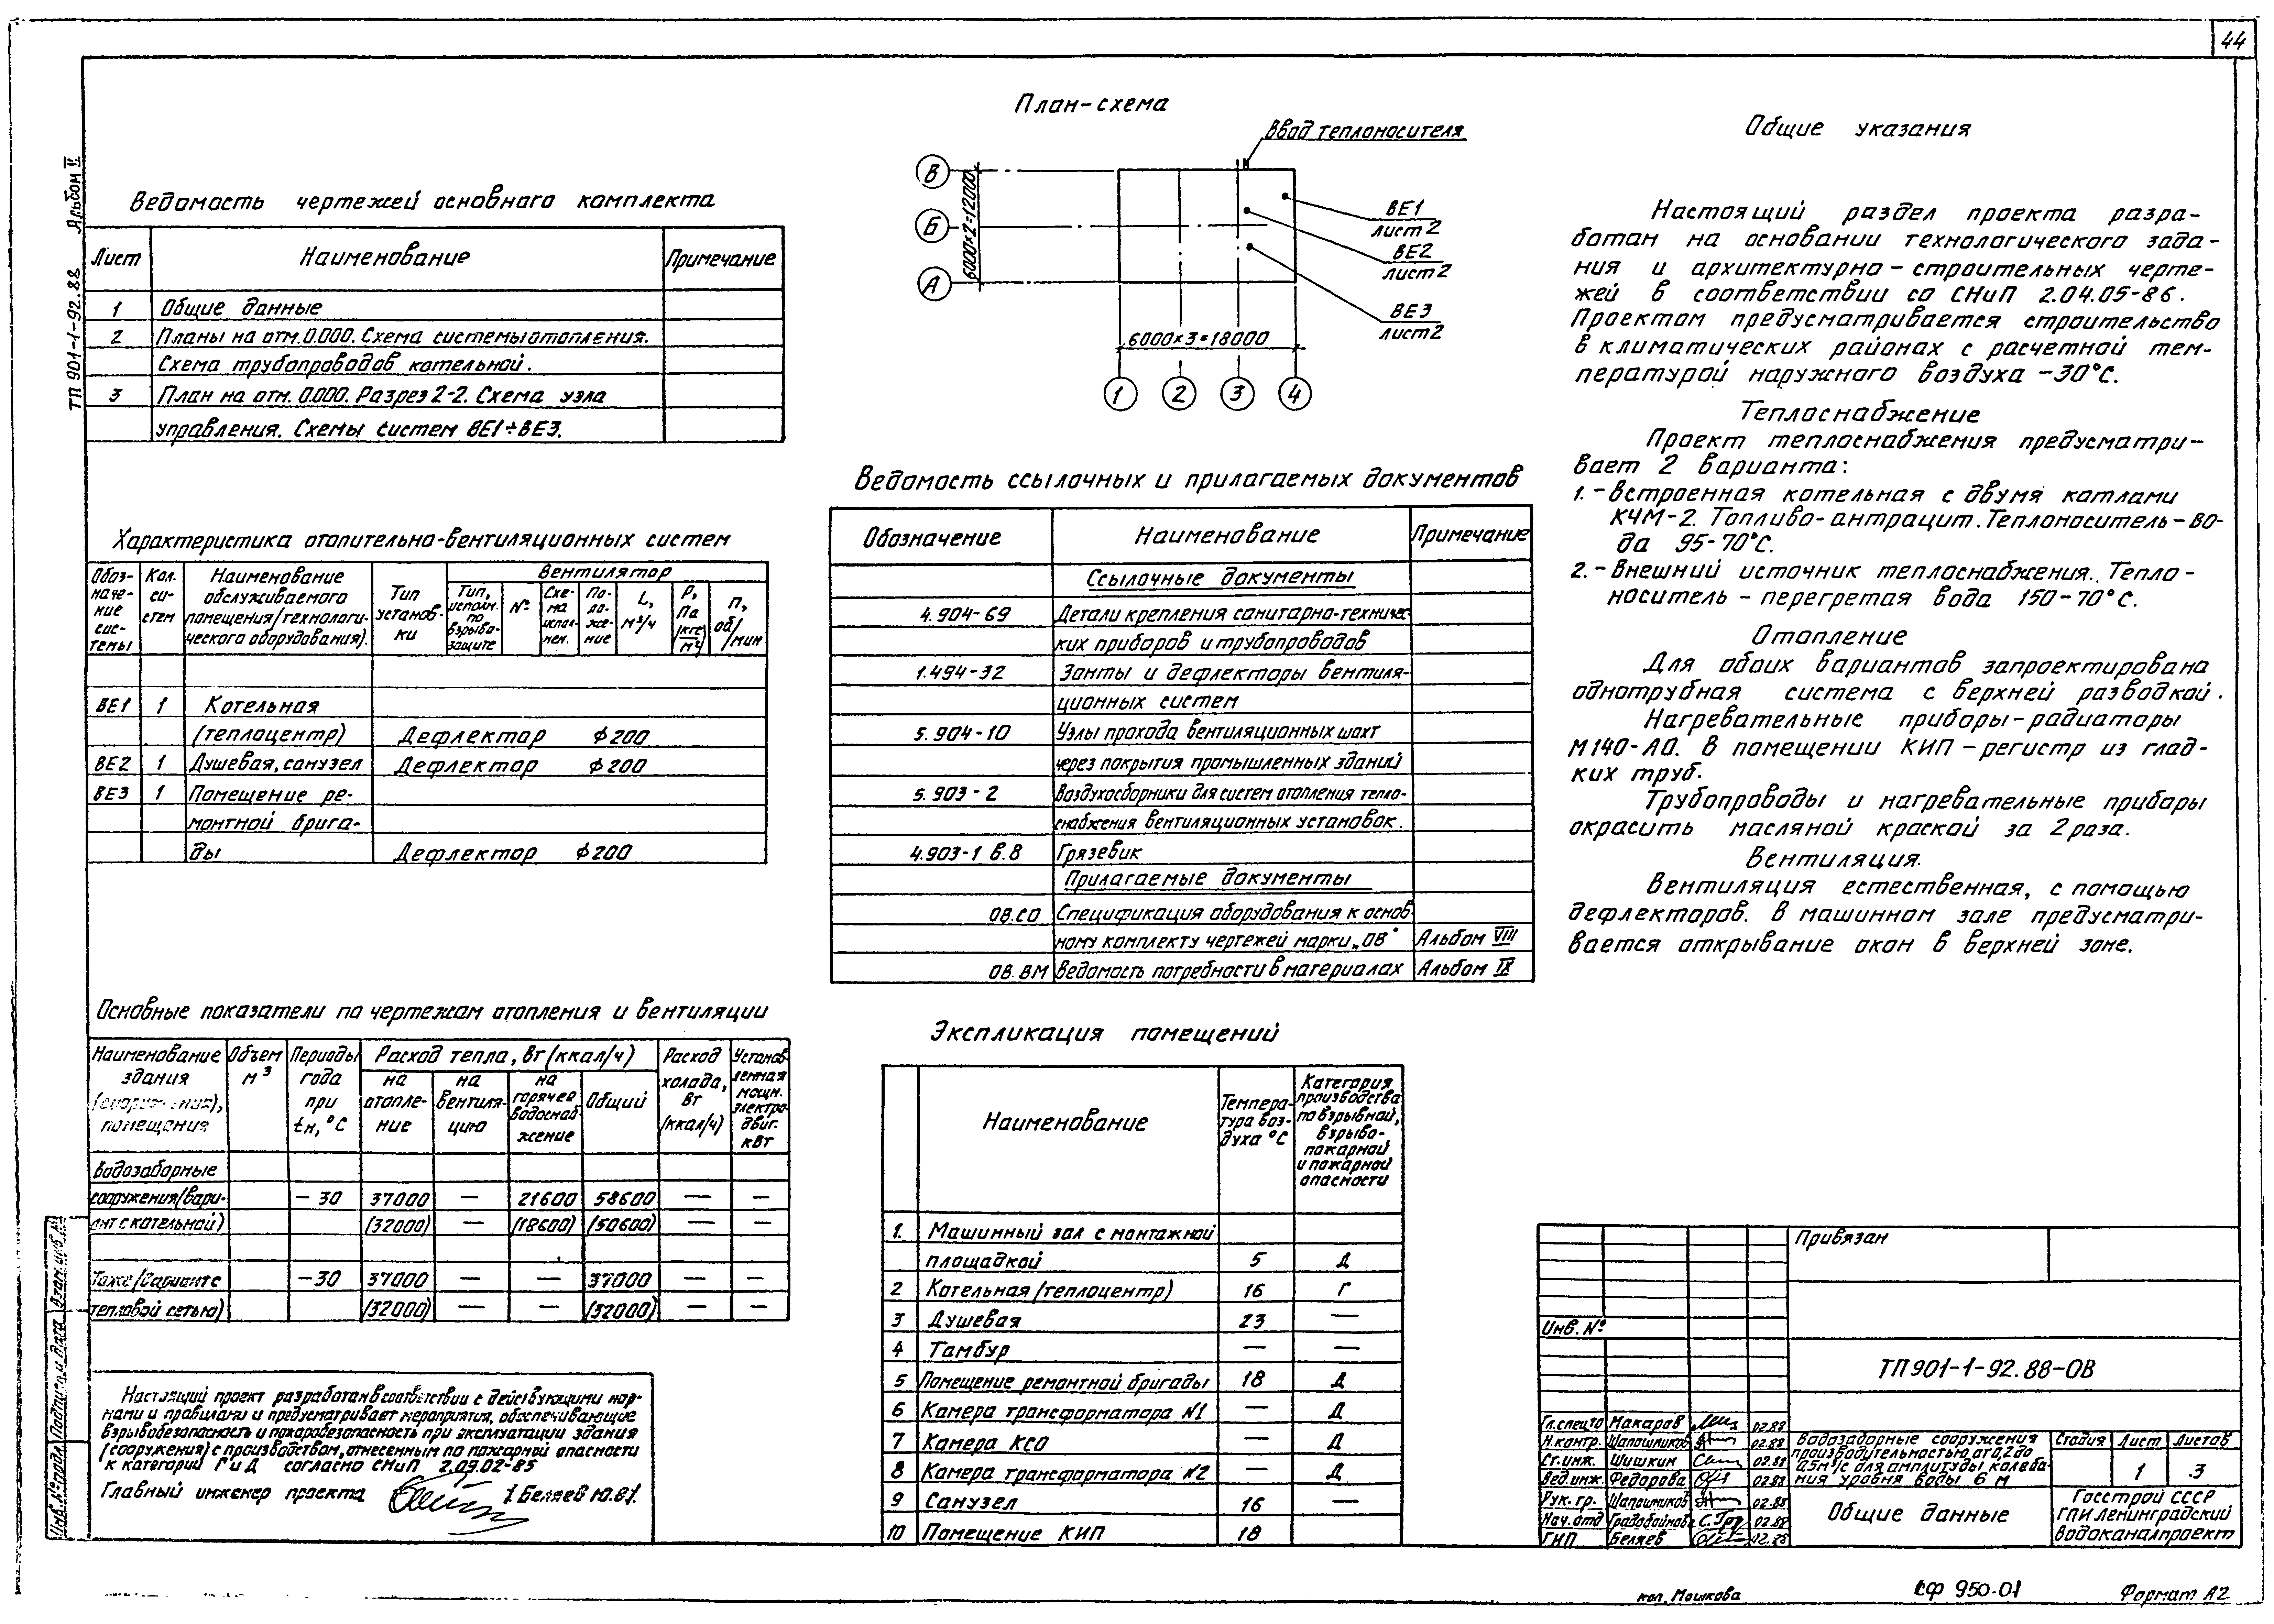 44
ТП 901-1-92.88 Альбом V
Ведомость чертежей основного комплекта
Лист Наименование Примечание
1 Общие данные
2 Планы на отм. 0.000. Схема системы отопления.
Схема трубопроводов котельной.
3 План на отм. 0.000. Разрез 2-2. Схема узла
управления. Схемы систем ВЕ1÷ВЕ3.
Характеристика отопительно-вентиляционных систем
Обоз-
наче-
ние
сис-
темы
Кол.
си-
стем
Наименование
обслуживаемого
помещения/технологи-
ческого оборудования).
Тип
установ-
ки
Вентилятор
Тип,
исполн.
по
взрыво-
защите
№
Схе-
ма
испол-
нен.
По-
ло-
же-
ние
L,
м³/ч
P,
Па
(кгс/м²)
п,
об/
/мин
ВЕ1 1 Котельная
(теплоцентр) Дефлектор ф200
ВЕ2 1 Душевая, санузел Дефлектор ф200
ВЕ3 1 Помещение ре-
монтной брига-
ды Дефлектор ф200
Основные показатели по чертежам отопления и вентиляции
Наименование
здания
(сооружения),
помещения
Объем
м³
Периоды
года
при
tн, °С
Расход тепла, Вт (ккал/ч)
на
отопле-
ние
на
вентиля-
цию
на
горячее
водоснаб-
жение
Общий
Расход
холода,
Вт
(ккал/ч)
Установ-
ленная
мощн.
электро-
двиг.
кВт
Водозаборные
сооружения/вари- -30 37000 — 21600 58600 — —
ант с котельной) (32000) — (18600) (50600) — —
Тоже/варианте -30 37000 — — 37000 — —
тепловой сетью) (32000) — — (32000) — —
Настоящий проект разработан в соответствии с действующими нор-
мами и правилами и предусматривает мероприятия, обеспечивающие
взрывобезопасность и пожаробезопасность при эксплуатации здания
(сооружения) с производством, отнесенным по пожарной опасности
к категории Г и Д согласно СНиП 2.09.02-85
Главный инженер проекта /Беляев Ю.В/.
Инв.№ подл. Подпись и дата Взам. инв №
План-схема
Ввод теплоносителя
В
Б
А
6000×2=12000
ВЕ1
лист 2
ВЕ2
лист 2
ВЕ3
лист 2
6000×3=18000
1 2 3 4
Ведомость ссылочных и прилагаемых документов
Обозначение Наименование Примечание
Ссылочные документы
4.904-69 Детали крепления санитарно-техничес-
ких приборов и трубопроводов
1.494-32 Зонты и дефлекторы вентиля-
ционных систем
5.904-10 Узлы прохода вентиляционных шахт
через покрытия промышленных зданий
5.903-2 Воздухосборники для систем отопления тепло-
снабжения вентиляционных установок.
4.903-1 в.8 Грязевик
Прилагаемые документы
ОВ.СО Спецификация оборудования к основ-
ному комплекту чертежей марки „ОВ" Альбом VIII
ОВ.ВМ Ведомость потребности в материалах Альбом IX
Экспликация помещений
Наименование
Темпера-
тура воз-
духа °С
Категория
производства
по взрывной,
взрыво-
пожарной
и пожарной
опасности
1. Машинный зал с монтажной
площадкой 5 Д
2 Котельная/теплоцентр) 16 Г
3 Душевая 23 —
4 Тамбур — —
5 Помещение ремонтной бригады 18 Д
6 Камера трансформатора N1 — Д
7 Камера КСО — Д
8 Камера трансформатора N2 — Д
9 Санузел 16 —
10 Помещение КИП 18
Общие указания
Настоящий раздел проекта разра-
ботан на основании технологического зада-
ния и архитектурно-строительных черте-
жей в соответствии со СНиП 2.04.05-86.
Проектом предусматривается строительство
в климатических районах с расчетной тем-
пературой наружного воздуха -30°С.
Теплоснабжение
Проект теплоснабжения предусматри-
вает 2 варианта:
1. - Встроенная котельная с двумя котлами
КЧМ-2. Топливо-антрацит. Теплоноситель-во-
да 95-70°С.
2. - Внешний источник теплоснабжения. Тепло-
носитель - перегретая вода 150-70°С.
Отопление
Для обоих вариантов запроектирована
однотрубная система с верхней разводкой.
Нагревательные приборы-радиаторы
М140-АО. В помещении КИП - регистр из глад-
ких труб.
Трубопроводы и нагревательные приборы
окрасить масляной краской за 2 раза.
Вентиляция.
Вентиляция естественная, с помощью
дефлекторов. В машинном зале предусматри-
вается открывание окон в верхней зоне.
Привязан
Инв. №
ТП 901-1-92.88-ОВ
Гл.спец ТО Макаров 02.88
Н.контр. Шапошников 02.88
Ст.инж. Шишкин 02.88
Вед.инж. Федорова 02.88
Рук. гр. Шапошников 02.88
Нач. отд Градобойнова 02.88
ГИП Беляев 02.88
Водозаборные сооружения
производительностью от 0,2 до
0,5 м³/с для амплитуды колеба-
ния уровня воды 6 м
Стадия Лист Листов
1 3
Общие данные
Госстрой СССР
ГПИ Ленинградский
Водоканалпроект
коп. Мошкова
СФ 950-01
Формат А2